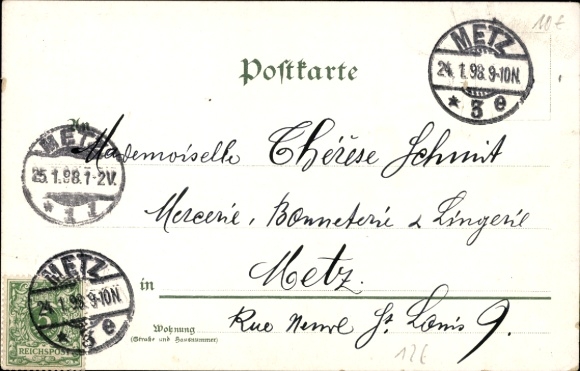 10€
METZ
24.1.98.9-10N.
* 3 e
Postkarte
An
METZ
25.1.98.1-2V.
* 1 1
Mademoiselle Thérèse Schmit
Mercerie, Bonneterie & Lingerie
in Metz.
METZ
24.1.98.9-10N.
* 3 e
REICHSPOST
Wohnung
(Straße und Hausnummer)
Rue St Louis 9.
12€